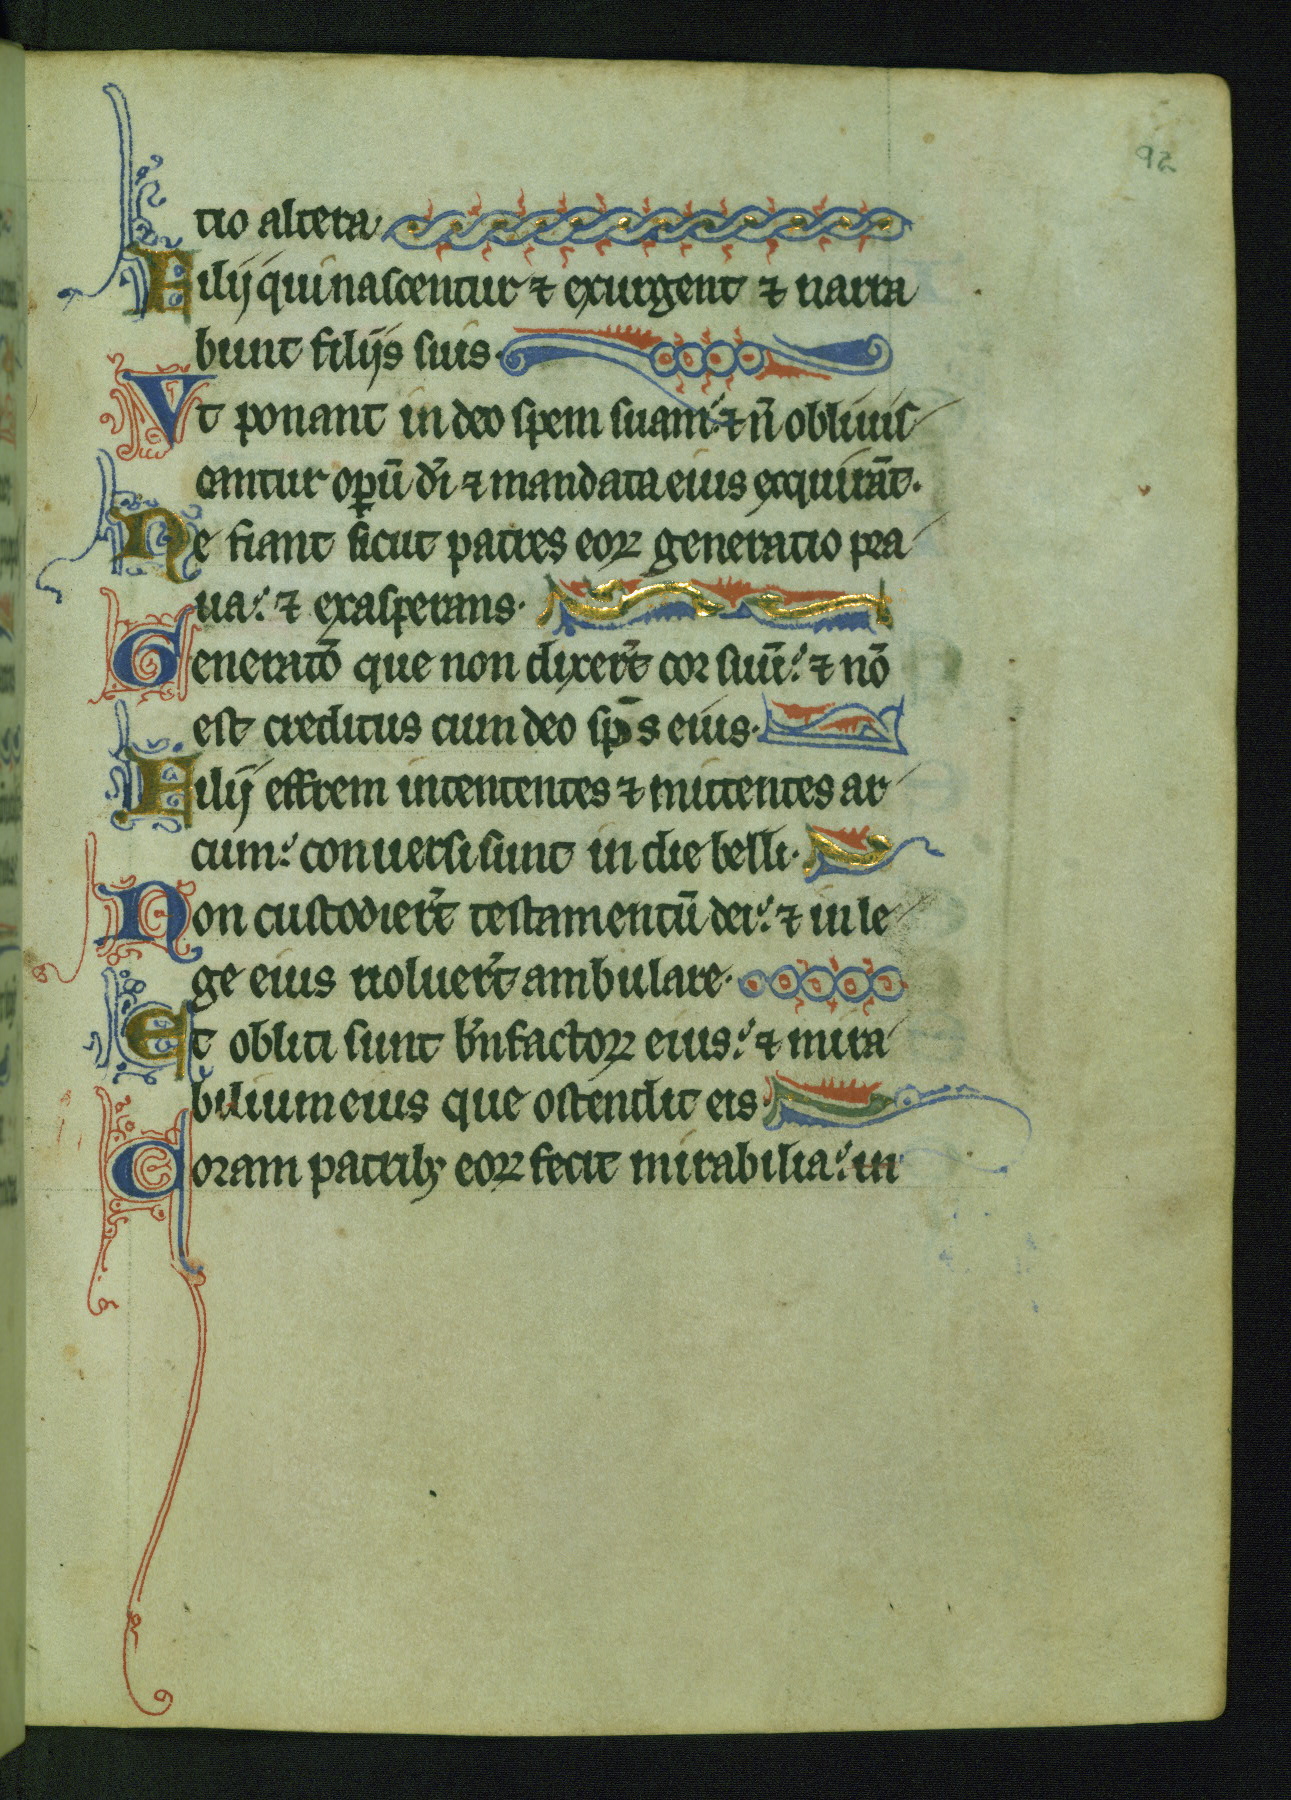 92
tio altera·
Filij qui nascentur ⁊ exurgent ⁊ narra
bunt filijs suis·
Vt ponant in deo spem suam: ⁊ ñ obliuis
cantur oꝑū dī ⁊ mandata eius exquirāt·
Ne fiant sicut patres eoꝝ generatio pra
ua: ⁊ exasperans·
Generatō que non direxer̄t cor suū: ⁊ nō
est creditus cum deo sp̄s eius·
Filij effrem intentențes ⁊ mittentes ar
cum: conuersi sunt in die belli·
Non custodier̄t testamentū dei: ⁊ in le
ge eius noluer̄t ambulare·
Et obliti sunt bn̄factoꝝ eius: ⁊ mira
bilium eius que ostendit eis·
Coram patribꝫ eoꝝ fecit mirabilia: in